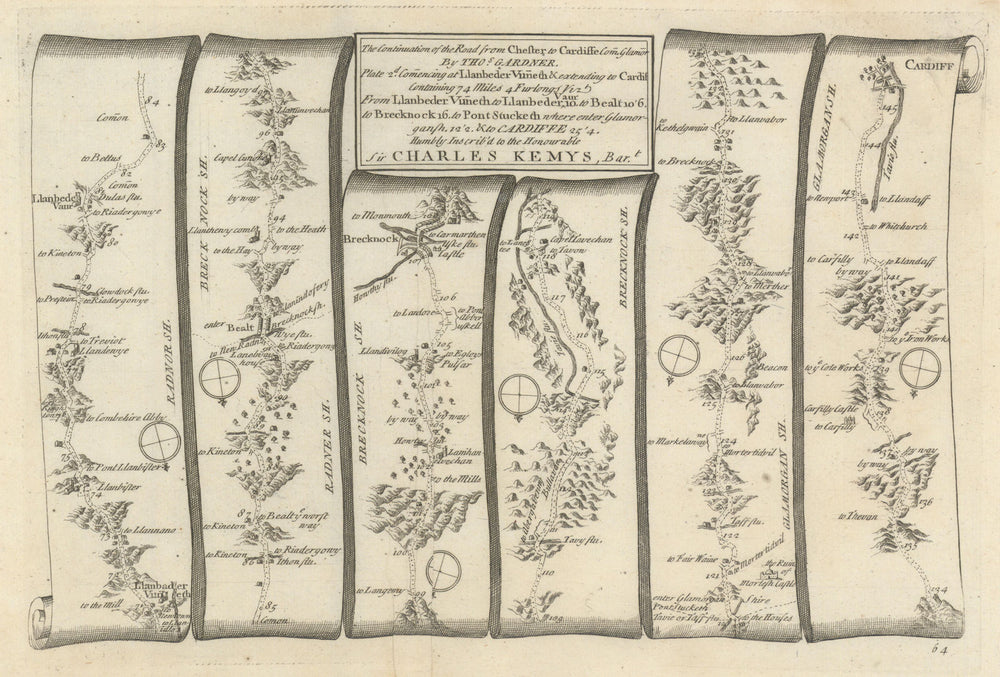 The Continuation of the Road from Chester to Cardiffe Com. Glamor
By THO.s GARDNER.
Plate 2.d Comencing at Llanbeder Vuneth & extending to Cardif
Containing 74 Miles 4 Furlongs Viz.t
From Llanbeder Vuneth to Llanbeder Vaur 10. to Bealt 10'6.
to Brecknock 16. to Pont Stucketh where enter Glamor-
gansh. 12'2. & to CARDIFFE 25'4.
Humbly Inscrib'd to the Honourable
Sir CHARLES KEMYS, Bar.t
84
Comõn
83
to Bettus
82
Comõn
Dulas flu.
Llanbeder
Vaur
to Riadergowye
80
to Kineton
79
Clowdock flu
to Prestein
to Riadergowye
78
Ithon flu
to Treviot
Llandewye
to Combehire Abby
75
to Pont Llanbister
Llanbister
74
to Llannano
73
72
Llanbader
Vuneth
to the Mill
RADNOR SH.
to Llangoyd
96
Capel
95
by way
94
to the Heath
to the Hay
by way
BRECKNOCK SH.
enter
Brecknocksh.
Bealt
Wye flu.
to New Radnor
to Riadergowy
90
to Kineton
RADNER SH.
87
to Kineton
to Bealt y.e worst
way
to Kineton
to Riadergowy
86
Ithon flu.
85
Comon
to Monmouth
108
to Carmarthen
Brecknock
Uske flu
Castle
107
Howthy flu.
106
to Landore
to Pont
Aber
uskell
105
to Egloys
Pulsar
by way
by way
Howty
to the Mills
BRECKNOCK SH.
100
to Langony
99
119
Cape Lavechan
to Tavon
118
117
116
BRECKNOCK SH.
115
112
Tavy flu.
110
109
to Llanvabor
to Kethelgwain
131
to Brecknock
128
to Llanvabor
to Merther
126
Beacon
to Llanvabor
125
124
to Marketaway
to Mortertidvil
Taff flu.
122
to Fair Waine
to Mortertidvil
121
the Ruins
of
Morlesh Castle
enter Glamorgan
Shire
Pont Stucketh
Tavie or Taff flu
to the Houses
GLAMORGAN SH.
GLAMORGAN SH.
CARDIFF
145
144
Tavie flu.
143
to Newport
to Llandaff
to Whitchurch
142
to Carfilly
by way
to Llandaff
141
to y.e Iron Works
to y.e Cote Works
139
Carfilly Castle
138
to Carfilly
137
by way
by way
136
to Thevan
135
134
64